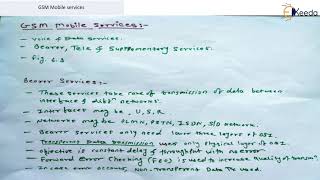 GSM Mobile services
Ekeeda
GSM Mobile Services:-
- Voice & Data Services.
- Bearer, Tele & Supplementary Services.
- Fig 6.3
Bearer Services:-
- These Services take care of transmission of data between
interface & diffn networks.
- Interfaces may be, U, S, R
- Networks may be PLMN, PSTN, ISDN,
- Bearer Services only need lower three layers of OSI.
- Transparent Data Transmission uses only physical layer of OSI.
- objective is constant delay & throughput with no error
- Forward Error Checking (FEC) is used to increase Quality of
- In case error occurs, Non-Transparent Data Tx used.